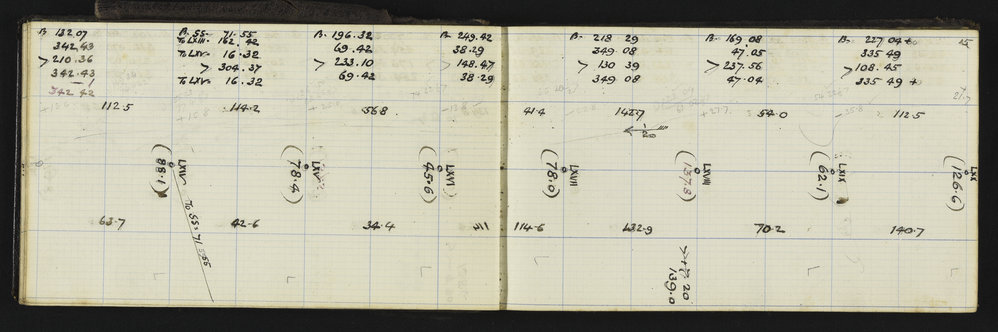 B. 132 07
342.43
> 210.36
342.43
342 42
B. SS. 71.55
To LXIII. 162. 42
To LXV. 16.32
> 304.37
To LXV. 16.32
B. 196.32
69.42
> 233.10
69.42
B. 249.42
38.29
> 148.47
38.29
B. 218 29
349.08
> 130 39
349 08
B. 169 08
47.05
> 237.56
47.04
B. 227 04 to
335 49
> 108.45
335 49 +
112.5
114.2
56.8
41.4
142.7
54.0
112.5
LXIV
(88.1)
LXV
(78.4)
LXVI
(45.6)
LXVII
(78.0)
LXVIII
(137.8)
LXIX
(62.1)
LXX
(126.6)
To SS. 71.55
63.7
42.6
34.4
114.6
132.9
70.2
140.7
139.0
L
L
L
L
L
L